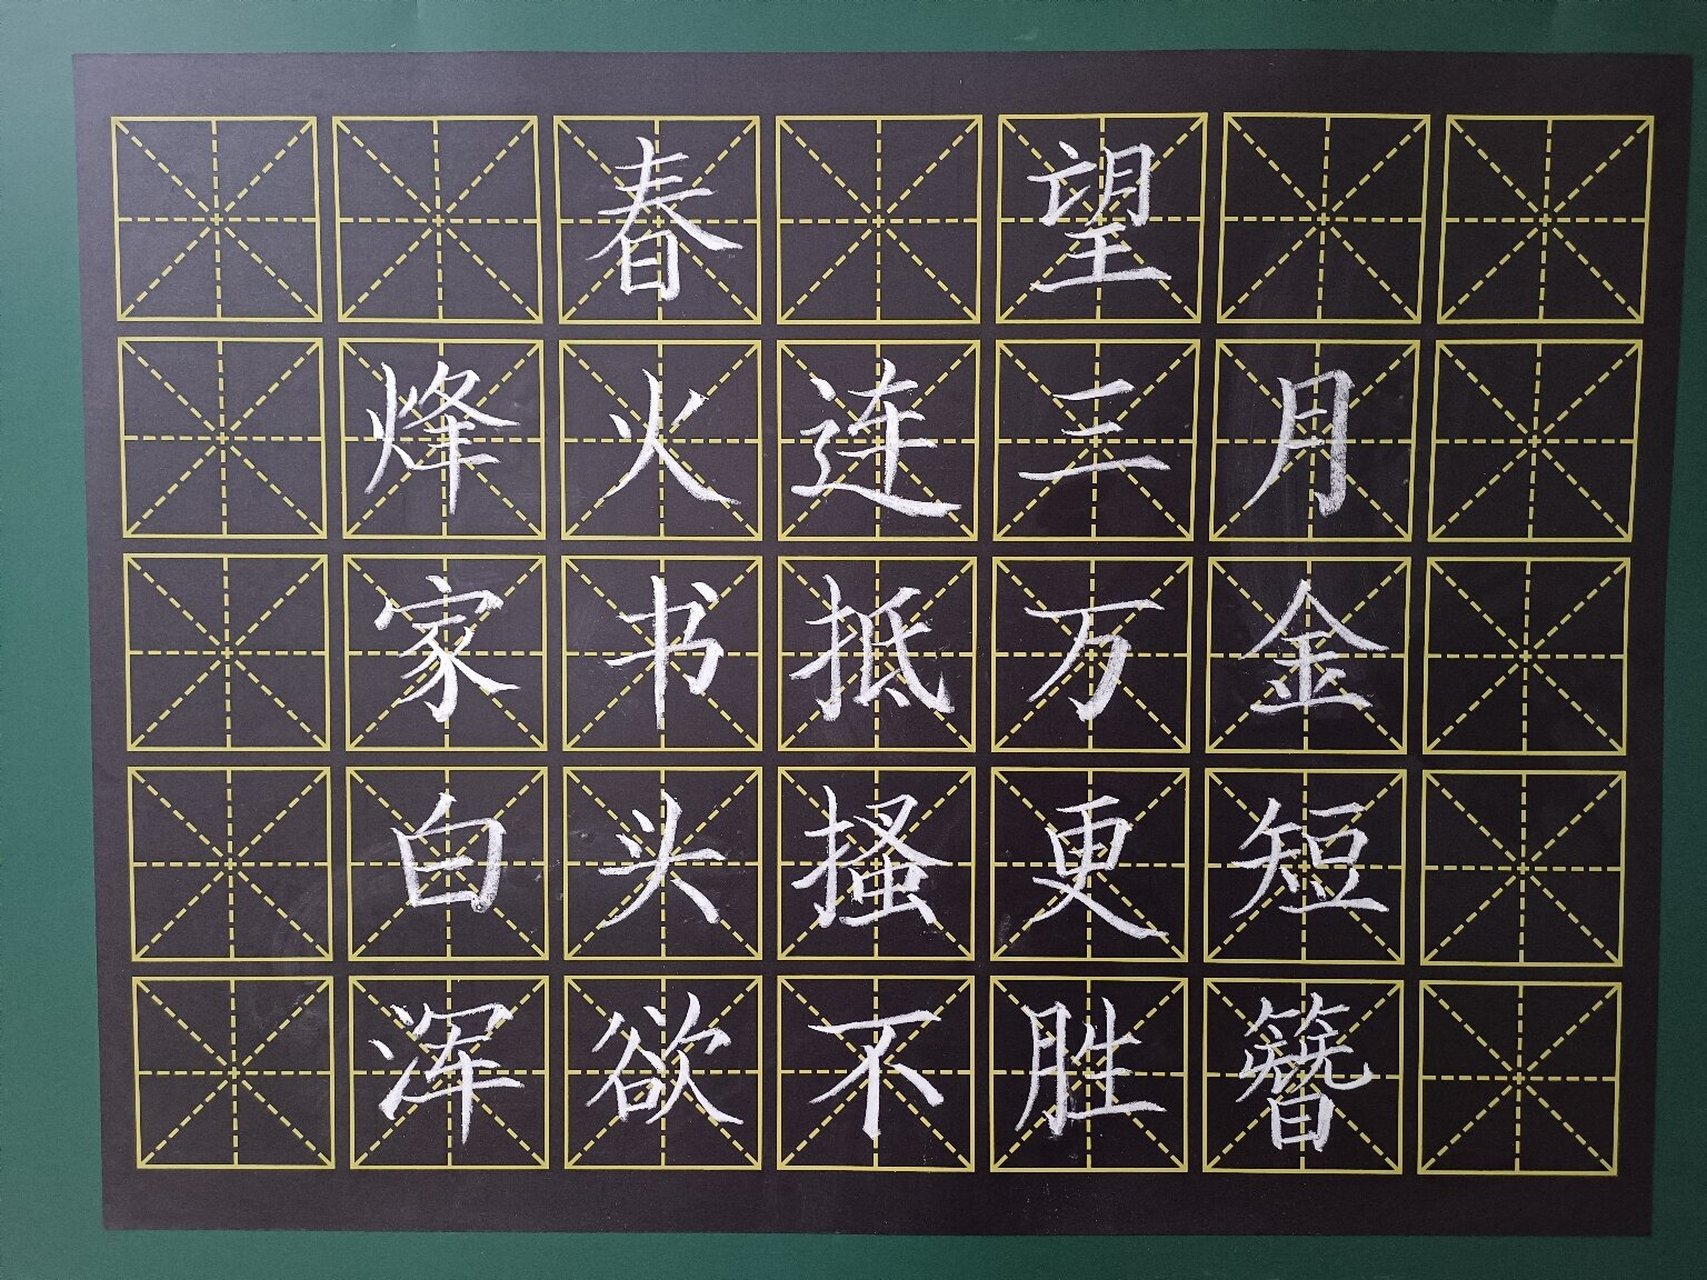 春望
烽火连三月
家书抵万金
白头搔更短
浑欲不胜簪